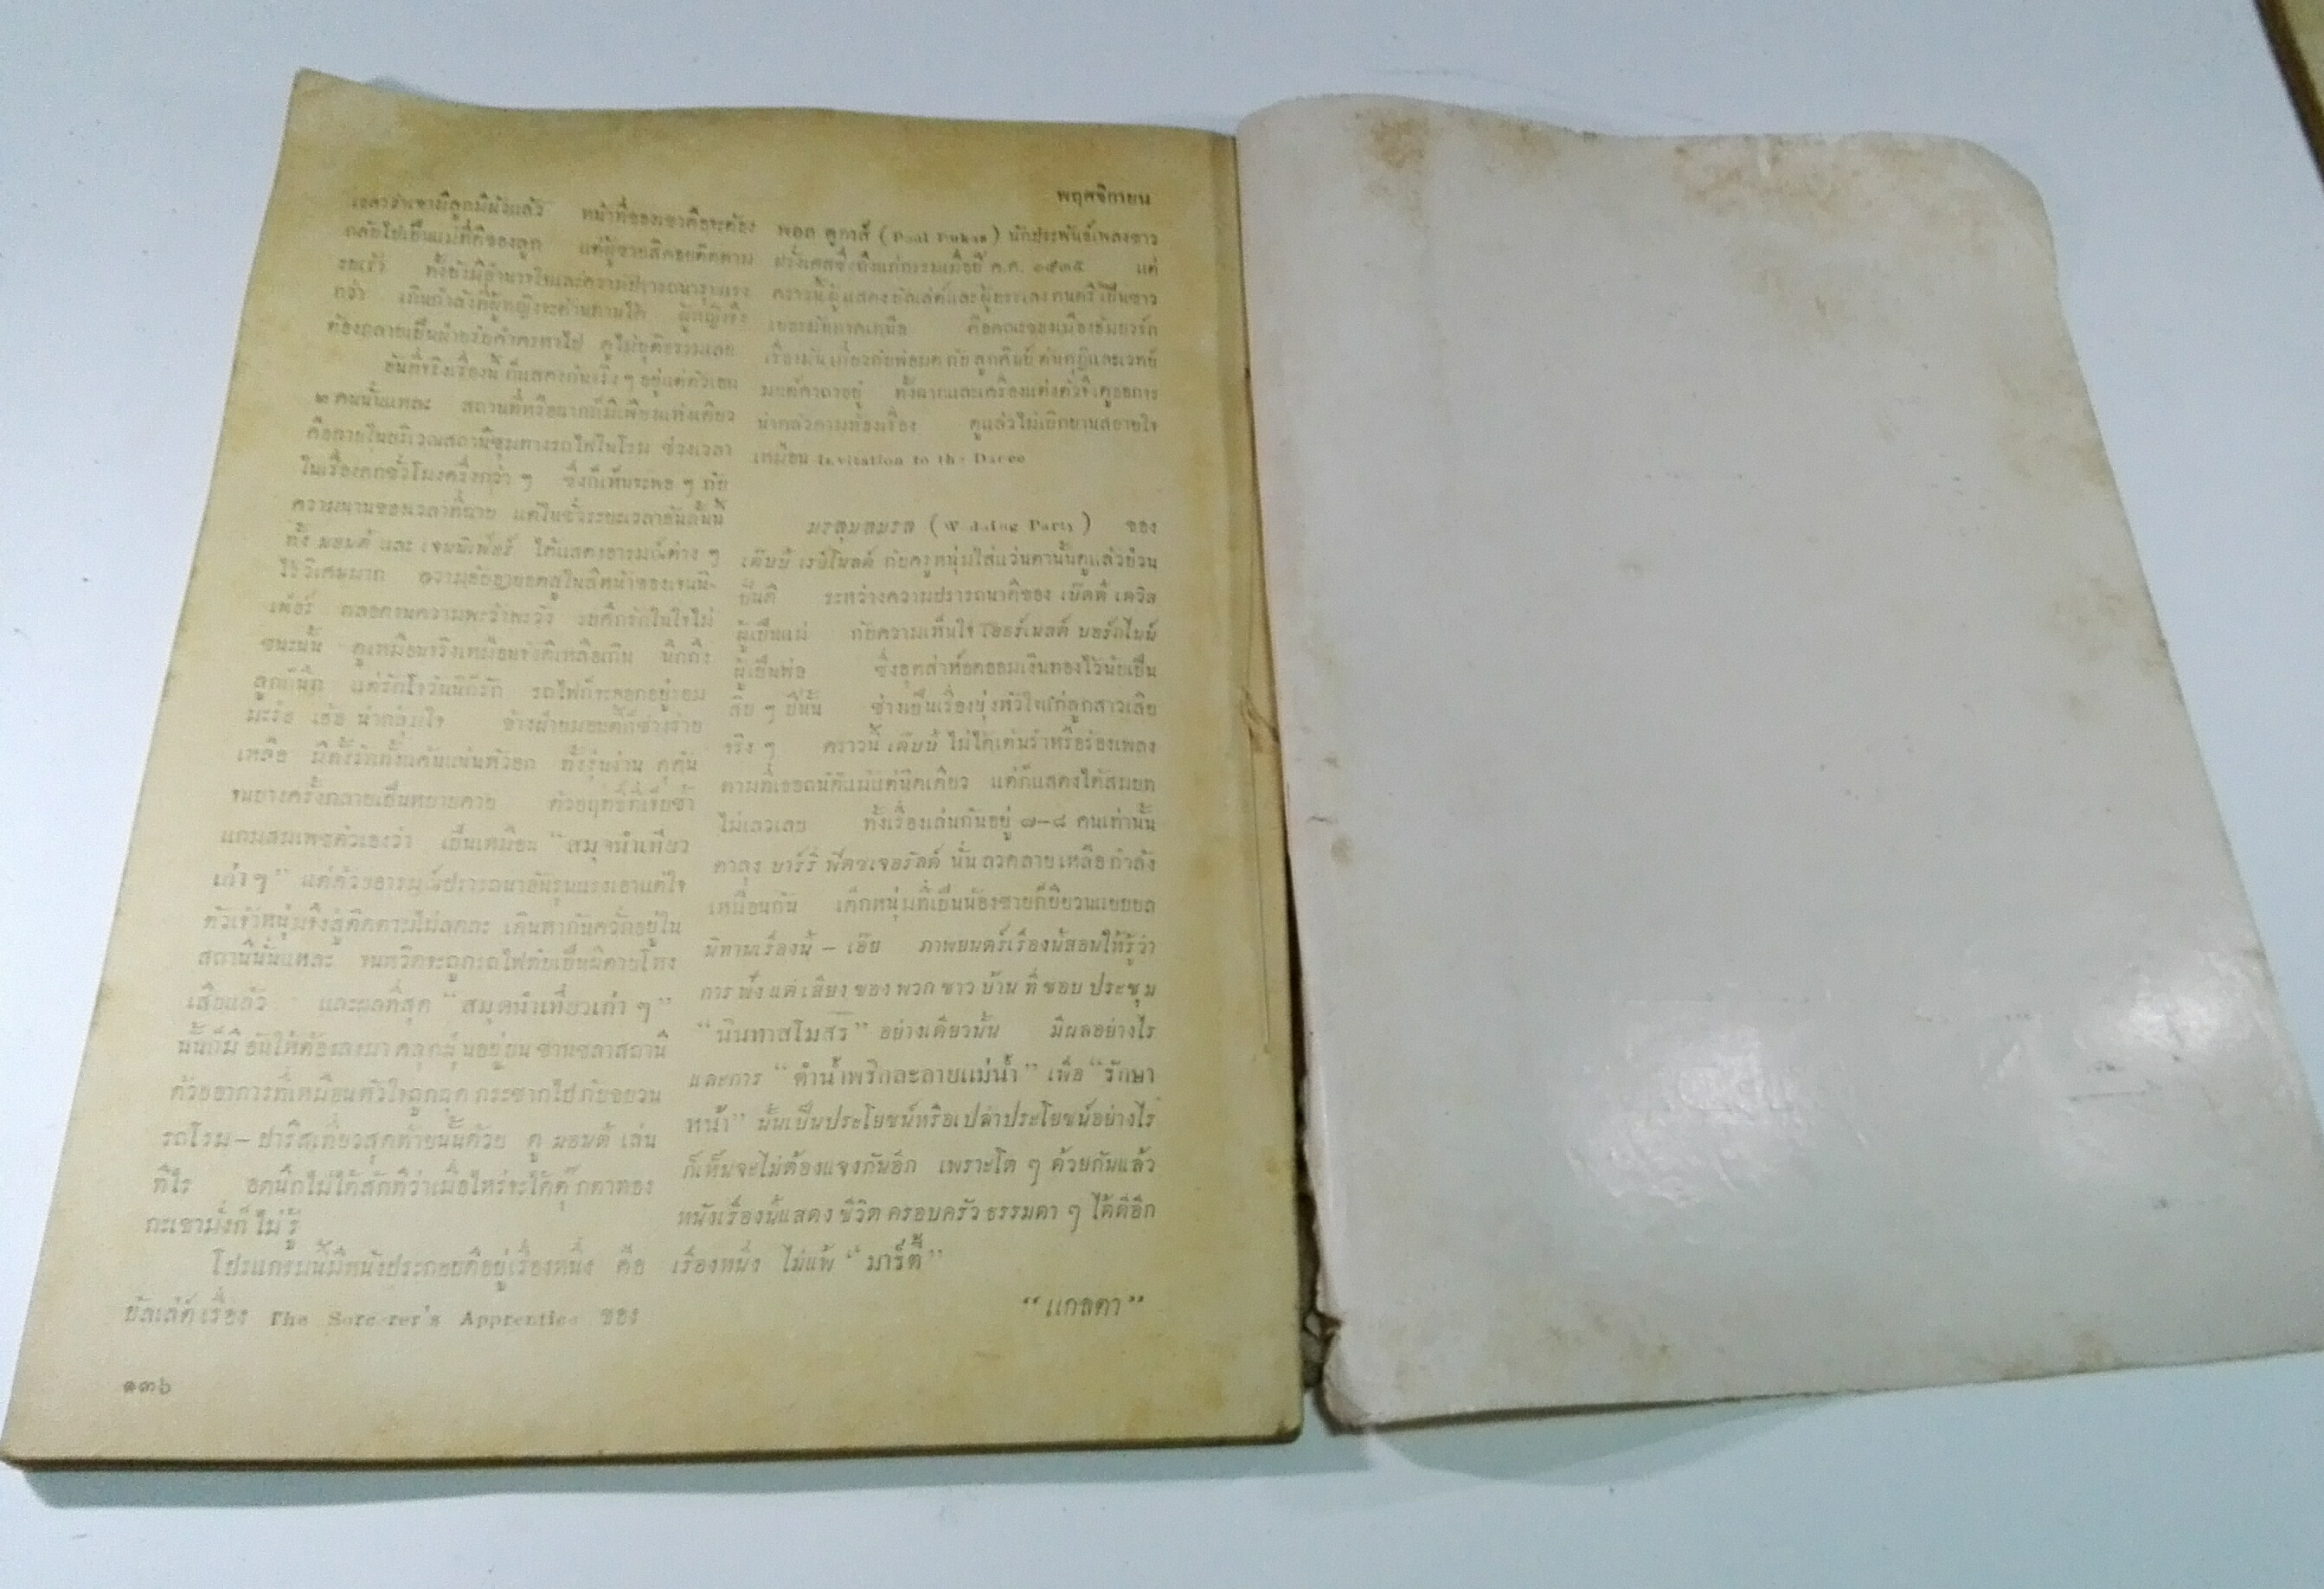 พฤศจิกายน
หน้าที่ของเขาคือจะต้อง
กลับไปเป็นแม่ที่ดีของลูก แต่ผู้ชายสิคอยติดตาม
กว่า เกินกำลังที่ผู้หญิงจะต้านทานได้ ผู้หญิงจึง
ดูไม่ยุติธรรมเลย
อันที่จริงเรื่องนี้ก็แสดงกันจริง ๆ อยู่แต่ตัวเอก
๒ คนนั้นแหละ สถานที่หรือฉากก็มีเพียงแห่งเดียว
คือภายในบริเวณสถานีชุมทางรถไฟในโรม ช่วงเวลา
ในเรื่องตกชั่วโมงครึ่งกว่า ๆ ซึ่งก็เห็นจะพอ ๆ กับ
ความนานของเวลาที่ฉาย แต่ในชั่วระยะเวลาอันสั้นนี้
ทั้ง มอนต์ และ เจนนิเฟอร์ ได้แสดงอารมณ์ต่าง ๆ
ไว้วิเศษมาก ความอับอายอดสูในสีหน้าของเจนนิ-
เฟอร์ ตลอดจนความพะว้าพะวัง
ชนะนั้น ดูเหมือนจริงเหมือนจังดีเหลือเกิน นึกถึง
ลูกก็นึก แต่รักโรวันนีก็รัก รถไฟก็จะออกอยู่รอม
มะร่อ เฮ้อ น่ากลุ้มใจ ข้างฝ่ายมอนต์ก็ช่างร้าย
เหลือ มีทั้งรักทั้งแค้นแน่นหัวอก
จนบางครั้งกลายเป็นหยาบคาย
แถมสมเพชตัวเองว่า เป็นเหมือน “สมุดนำเที่ยว
เก่า ๆ” แต่ด้วยอารมณ์ปรารถนาอันรุนแรงเอาแต่ใจ
ตัวเจ้าหนุ่มจึงสู้ติดตามไม่ลดละ เดินหากันควั่กอยู่ใน
สถานีนั่นแหละ จนหวิดจะถูกรถไฟทับเป็นผีตายโหง
เสียแล้ว และผลที่สุด “สมุดนำเที่ยวเก่า ๆ”
นั้นก็มีอันให้ต้องลงมาคลุกฝุ่นอยู่บนชานชลาสถานี
ด้วยอาการที่เหมือนหัวใจถูกฉุดกระชากไปกับขบวน
รถโรม – ปารีสเที่ยวสุดท้ายนั้นด้วย ดู มอนต์ เล่น
ทีไร อดนึกไม่ได้สักทีว่าเมื่อไหร่จะได้ตุ๊กตาทอง
กะเขามั่งก็ไม่รู้
โปรแกรมนี้มีหนังประกอบดีอยู่เรื่องหนึ่ง คือ
บัลเล่ต์เรื่อง The Sorcerer's Apprentice ของ
พอล ดูกาส์ (Paul Dukas) นักประพันธ์เพลงชาว
ฝรั่งเศสซึ่งถึงแก่กรรมเมื่อปี ค.ศ. ๑๙๓๕ แต่
คราวนี้ผู้แสดงบัลเล่ต์และผู้บรรเลงดนตรีเป็นชาว
เยอรมันภาคเหนือ คือคณะของเมืองฮัมบวร์ก
เรื่องมันเกี่ยวกับพ่อมดกับลูกศิษย์
มนต์คาถาอยู่ ทั้งฉากและเครื่องแต่งตัวจึงดูออกจะ
น่ากลัวตามท้องเรื่อง ดูแล้วไม่เบิกบานสบายใจ
เหมือน Invitation to the Dance
มรสุมสมรส (Wedding Party) ของ
เด๊บบี้ เรย์โนลด์ กับครูหนุ่มใส่แว่นตานั้นดูแล้วป่วน
ปั่นดี ระหว่างความปรารถนาดีของ เบ๊ตตี้ เดวิส
ผู้เป็นแม่ กับความเห็นใจ เออร์เนสต์ บอร์กไนน์
ผู้เป็นพ่อ ซึ่งอุตส่าห์อดออมเงินทองไว้นับเป็น
สิบ ๆ ปีนั้น ช่างเป็นเรื่องยุ่งหัวใจแก่ลูกสาวเสีย
จริง ๆ คราวนี้ เด๊บบี้ ไม่ได้เต้นรำหรือร้องเพลง
ตามที่เธอถนัดแม้แต่นิดเดียว แต่ก็แสดงได้สมบท
ไม่เลวเลย ทั้งเรื่องเล่นกันอยู่ ๗–๘ คนเท่านั้น
ตาลุง บาร์รี่ ฟิตซเจอรัลด์ นั่น ลวดลายเหลือกำลัง
เหมือนกัน เด็กหนุ่มที่เป็นน้องชายก็ยียวนแยบยล
นิทานเรื่องนี้ – เอ๊ย ภาพยนตร์เรื่องนี้สอนให้รู้ว่า
การฟังแต่เสียงของพวกชาวบ้านที่ชอบประชุม
“นินทาสโมสร” อย่างเดียวนั้น มีผลอย่างไร
และการ “ตำน้ำพริกละลายแม่น้ำ” เพื่อ “รักษา
หน้า” นั้นเป็นประโยชน์หรือเปล่าประโยชน์อย่างไร
ก็เห็นจะไม่ต้องแจงกันอีก เพราะโต ๆ ด้วยกันแล้ว
หนังเรื่องนี้แสดงชีวิตครอบครัวธรรมดา ๆ ได้ดีอีก
เรื่องหนึ่ง ไม่แพ้ “มาร์ตี้”
“แกลตา”
๑๓๖